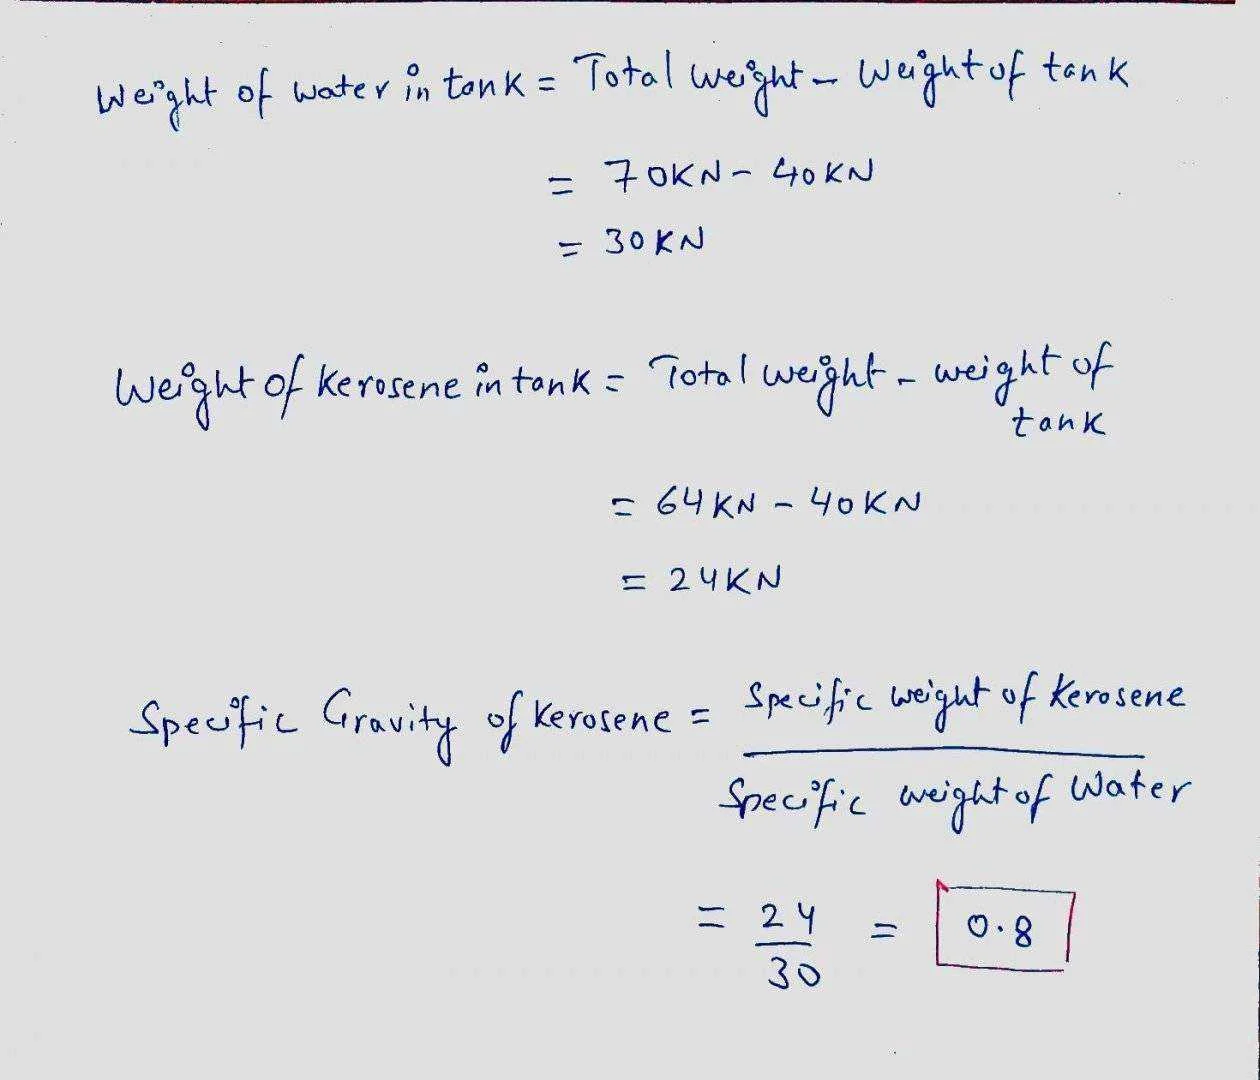 Weight of water in tank = Total weight - Weight of tank
= 70KN - 40KN
= 30KN
Weight of Kerosene in tank = Total weight - weight of
tank
= 64KN - 40KN
= 24KN
Specific Gravity of Kerosene = Specific weight of Kerosene
Specific weight of Water
= 24 = 0.8
30